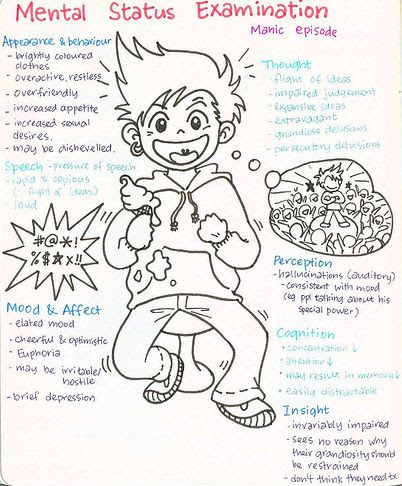 Mental Status Examination
Manic episode
Appearance & behaviour
- brightly coloured
clothes
- overactive, restless
- overfriendly
- increased appetite
- increased sexual
desires.
- may be dishevelled.
Speech - pressure of speech
- rapid & copious
(: flight of ideas)
- loud
#@*!
%$★x!!
Mood & Affect
- elated mood
- cheerful & optimistic
- Euphoria
- may be irritable/
hostile
- brief depression
Thought
- flight of ideas
- impaired judgement
- expansive ideas
- extravagant
- grandiose delusions
- persecutory delusions
Perception
- hallucinations (auditory)
- consistent with mood
(eg ppl talking about his
special power)
Cognition
- concentration ↓
- attention ↓
- may result in memory ↓
- easily distractable
Insight
- invariably impaired
- sees no reason why
their grandiosity should
be restrained
- don't think they need tx